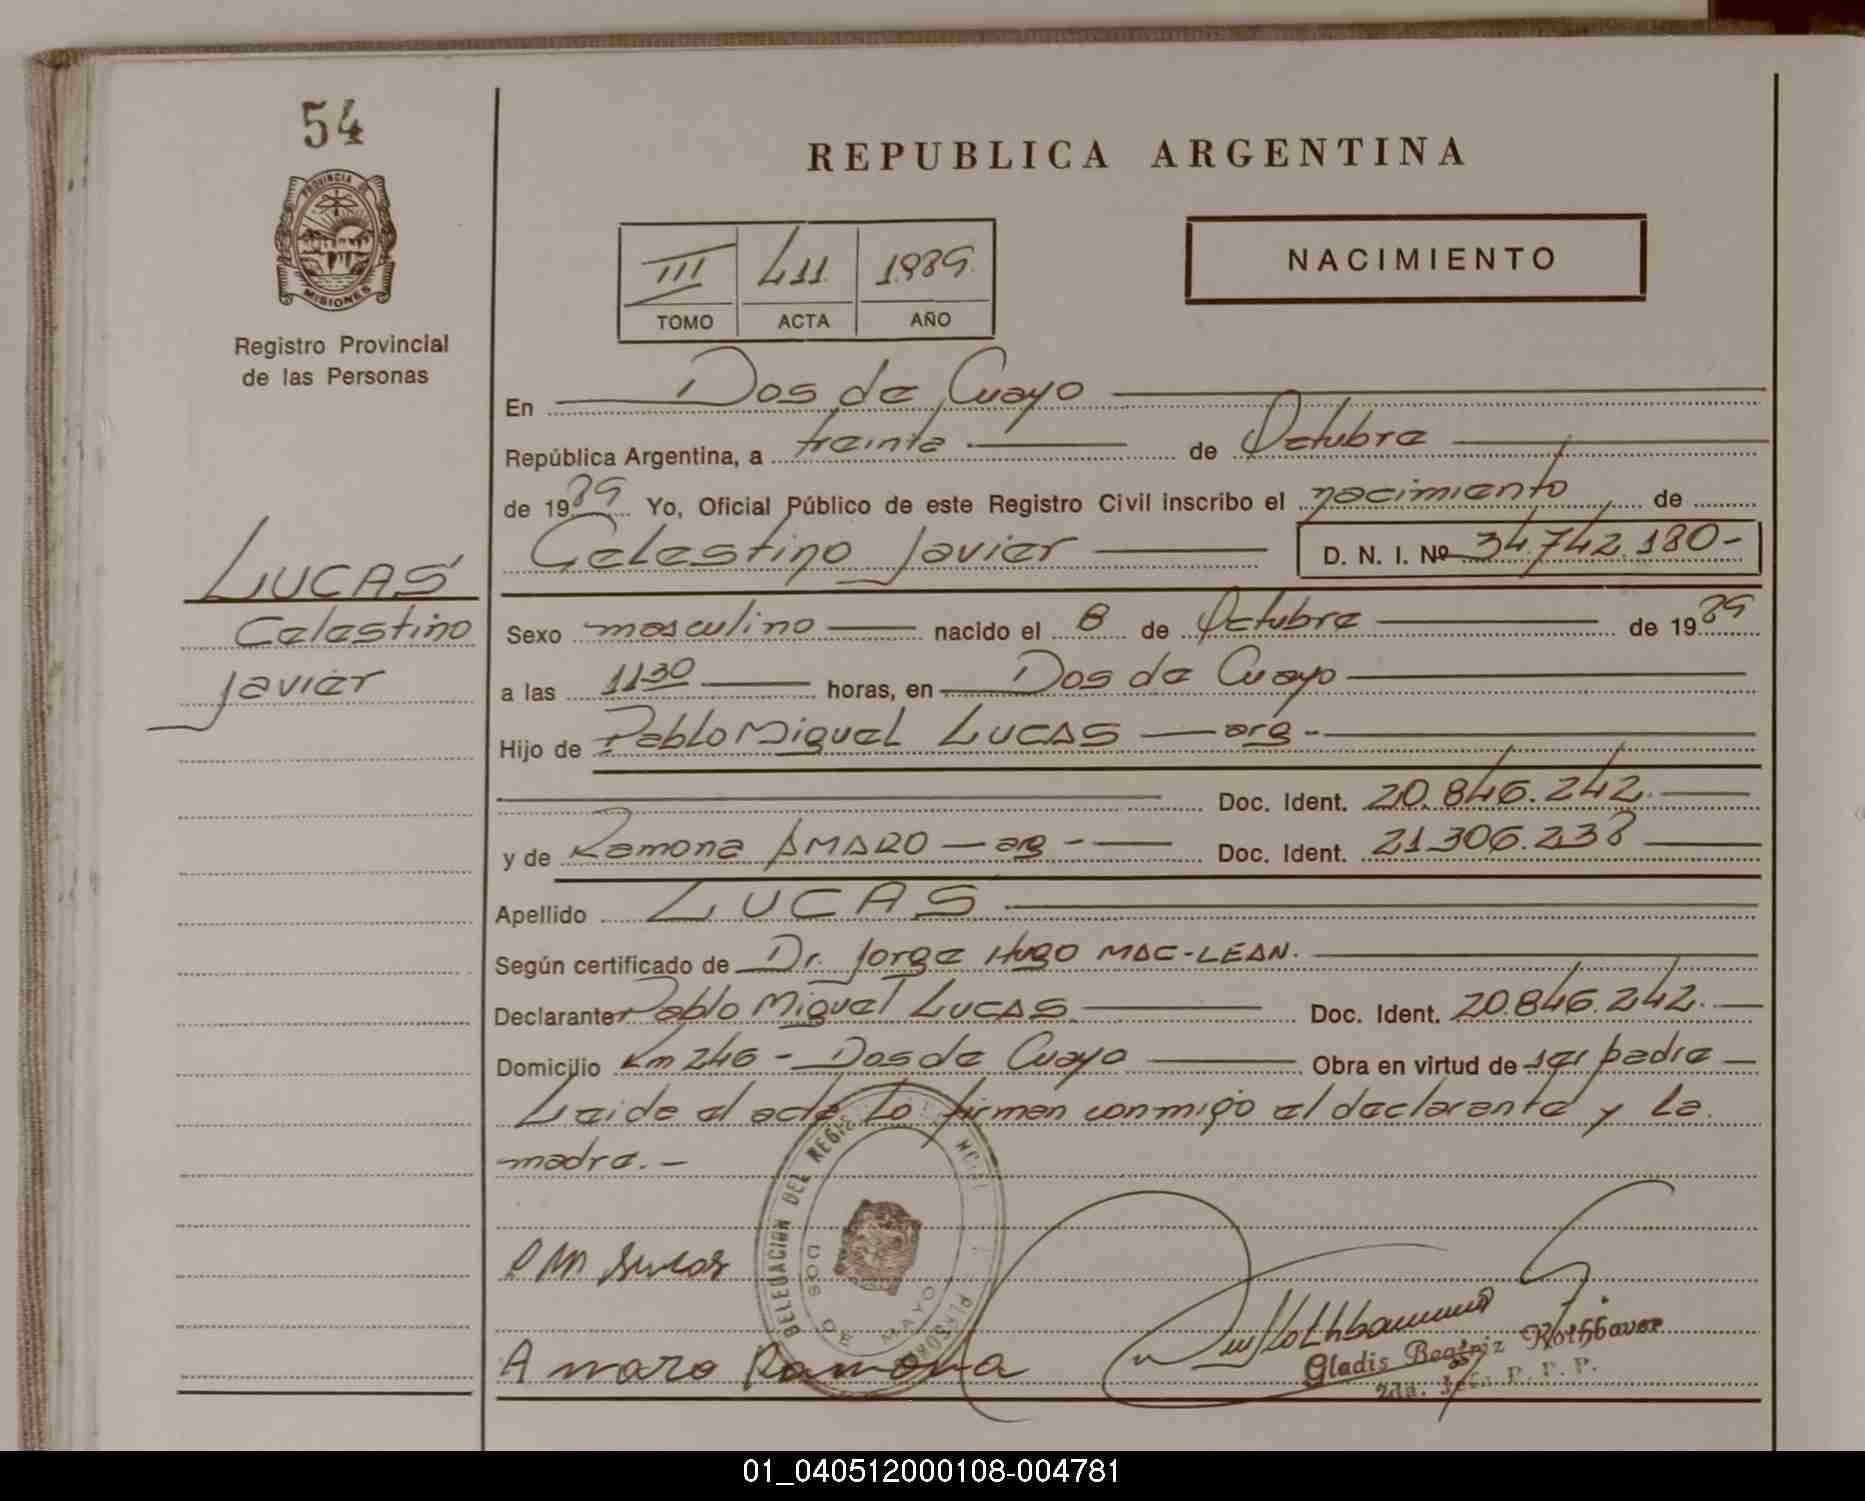 54
REPUBLICA ARGENTINA
PROVINCIA DE
MISIONES
Registro Provincial
de las Personas
III 411 1989
TOMO ACTA AÑO
NACIMIENTO
En Dos de Mayo
República Argentina, a treinta de Octubre
de 1989 Yo, Oficial Público de este Registro Civil inscribo el nacimiento de
Celestino Javier D. N. I. Nº 34.742.180-
LUCAS
Celestino
Javier
Sexo masculino nacido el 8 de Octubre de 1989
a las 11 30 horas, en Dos de Mayo
Hijo de Pablo Miguel LUCAS - arg -
Doc. Ident. 20.846.242.
y de Ramona AMARO - arg - Doc. Ident. 21.306.238
Apellido LUCAS
Según certificado de Dr. Jorge Hugo MAC-LEAN.
Declarante Pablo Miguel LUCAS Doc. Ident. 20.846.242.
Domicilio Km 246 - Dos de Mayo Obra en virtud de ser padre
Leida el acta lo firman conmigo el declarante y la
madre.-
DELEGACION DEL REGIS
DOS DE MAYO
P M Lucas
Amaro Ramona
Gladis Beatriz Rothbauer
2da. Jefa R. P. P.
01_040512000108-004781